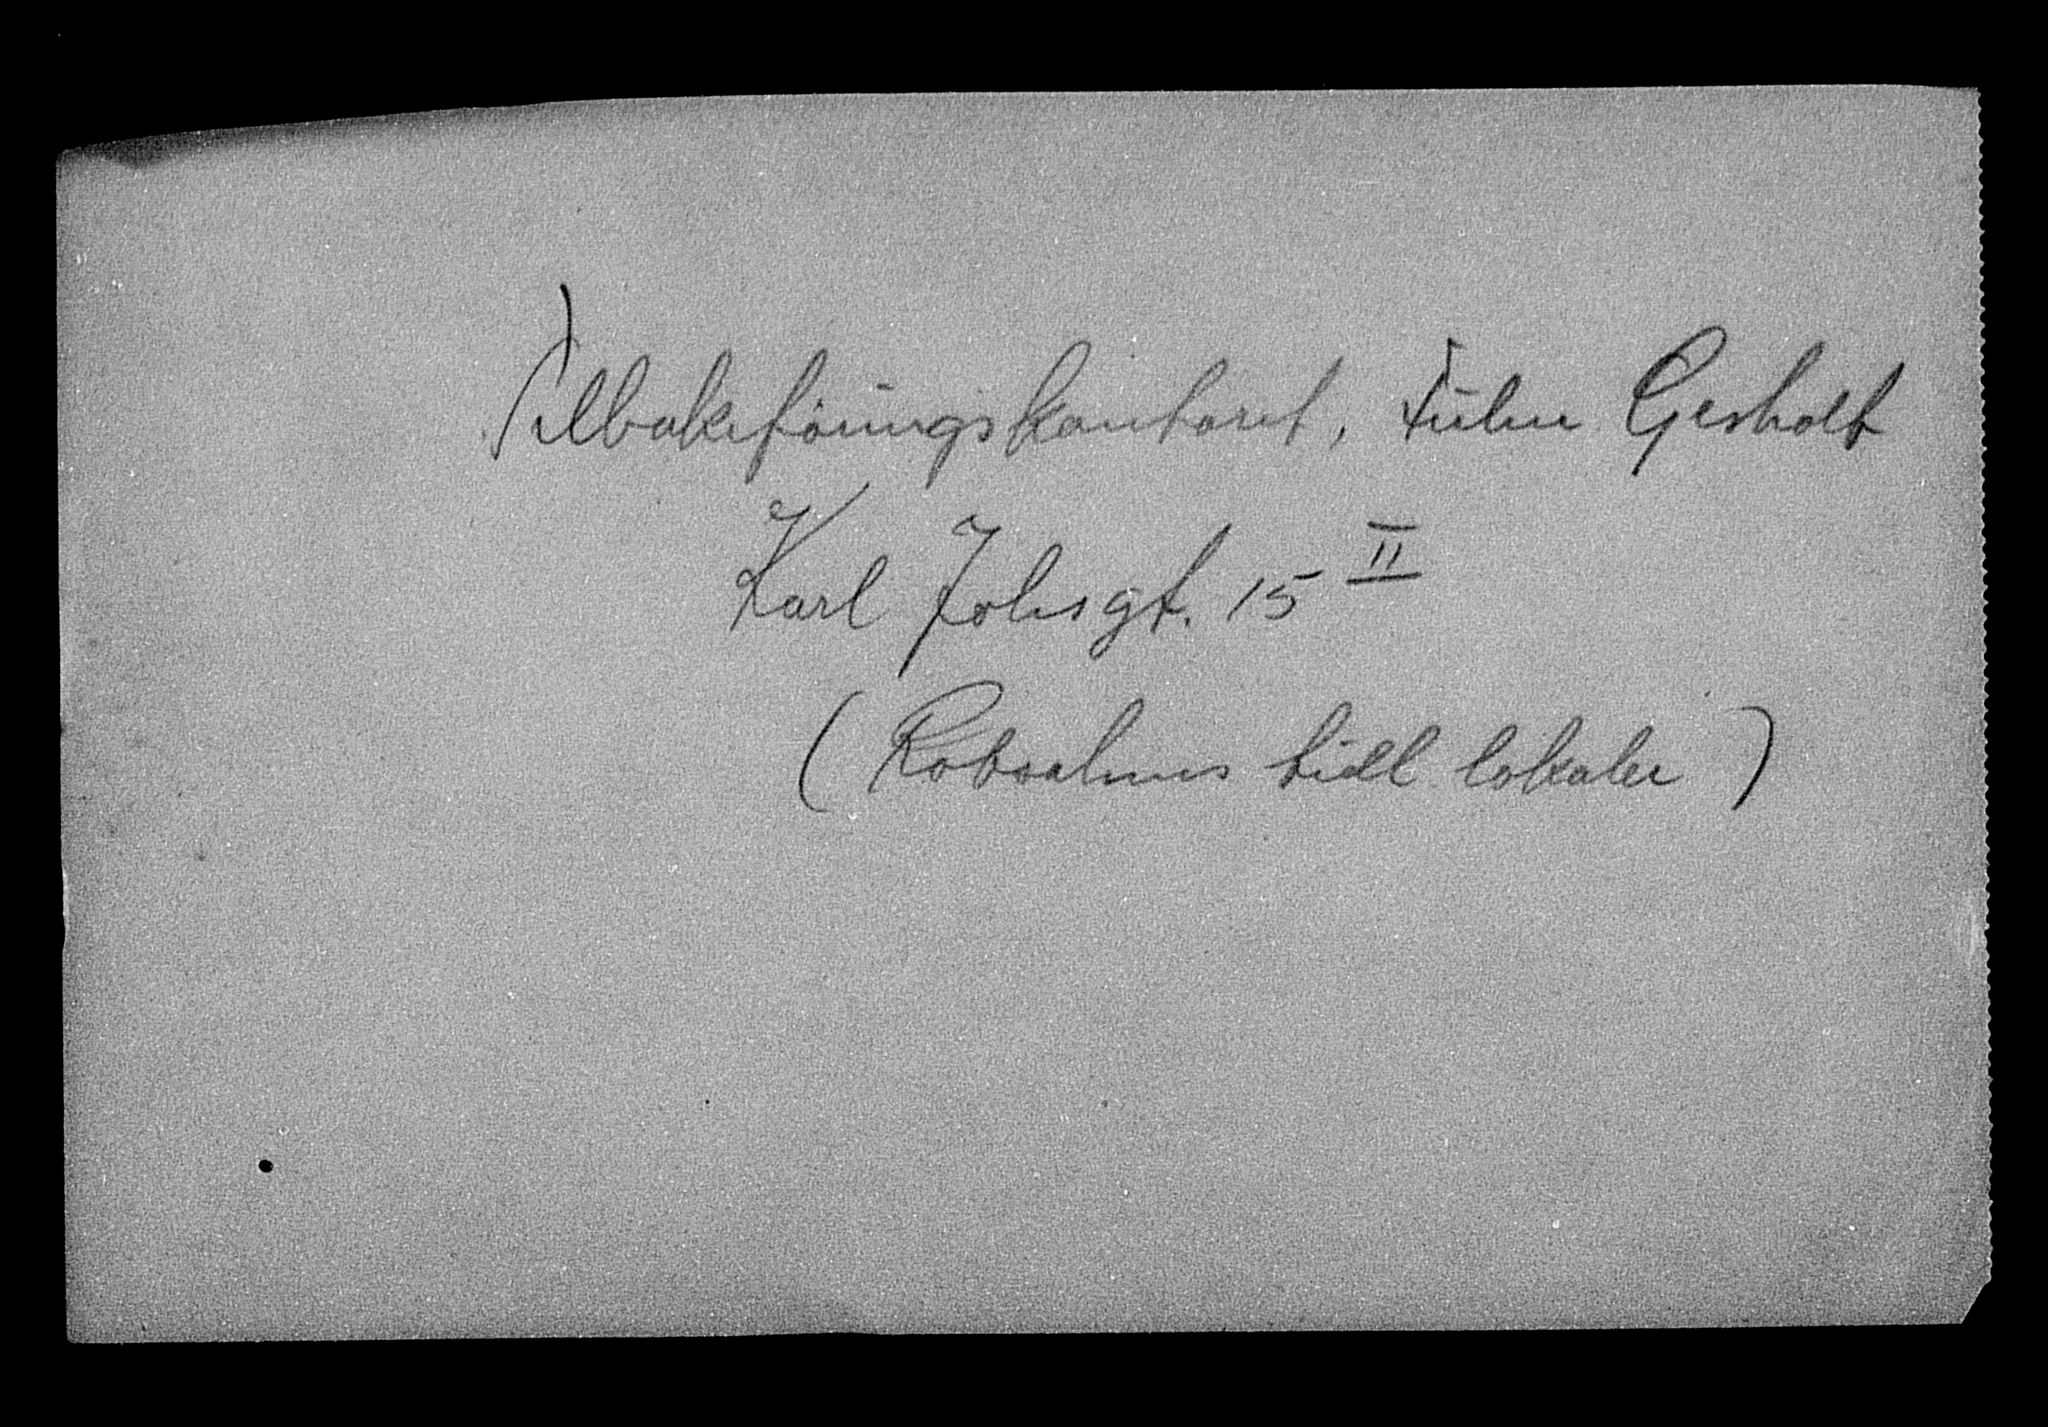 Tilbakeføringskontoret, Gerholt
Karl Johsgt. 15 II
(Robsahms tidl. lokaler)